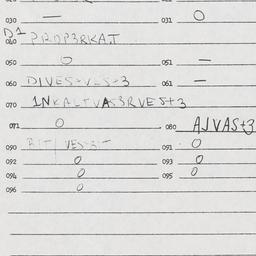 030 — 031 O
D1
040 PROP3RKA.T
050 O 051 —
060 DIVES+VES+3 061 —
070 1NKALTVAS3RVES+3
071 O 080 AJVAS+3
090 091 O
092 O 093 O
094 O 095 O
096 O